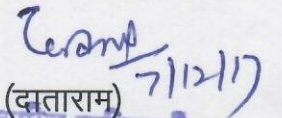 7/12/17
(दाताराम)